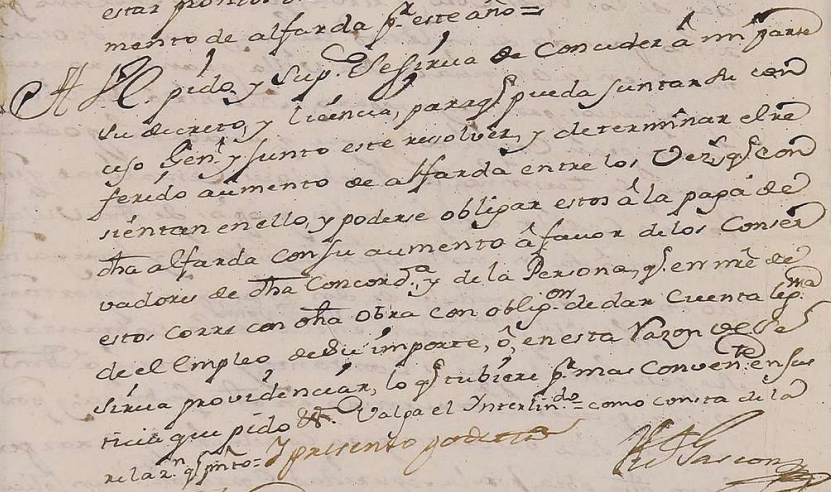 estar prontos
mento de alfarda pr. este año=
A V.E. pido, y Sup.co se sirva de Conceder â mi parte
su decreto, y licencia, para q.e pueda juntar su con
cejo Gen.l y junto este resolver, y determinar el re
ferido aumento de alfarda entre los Vez.s q.e con
sientan en ello, y poderse obligar estos â la paga de
dha alfarda con su aumento â favor de los Conser
vadores de dha Concord.a y de la Persona, q.e en nre de
estos corre con dha Obra con oblig.on de dar Cuenta leg.ma
de el Empleo de su importe, ô, en esta Razon V.E. se
sirva providenciar, lo q.e tubiere pr. mas Conven.te en jus
ticia que pido &.a Valga el Interlin.do = como consta de la
relaz.n q.e pnto = Y presento poder =
Gascon